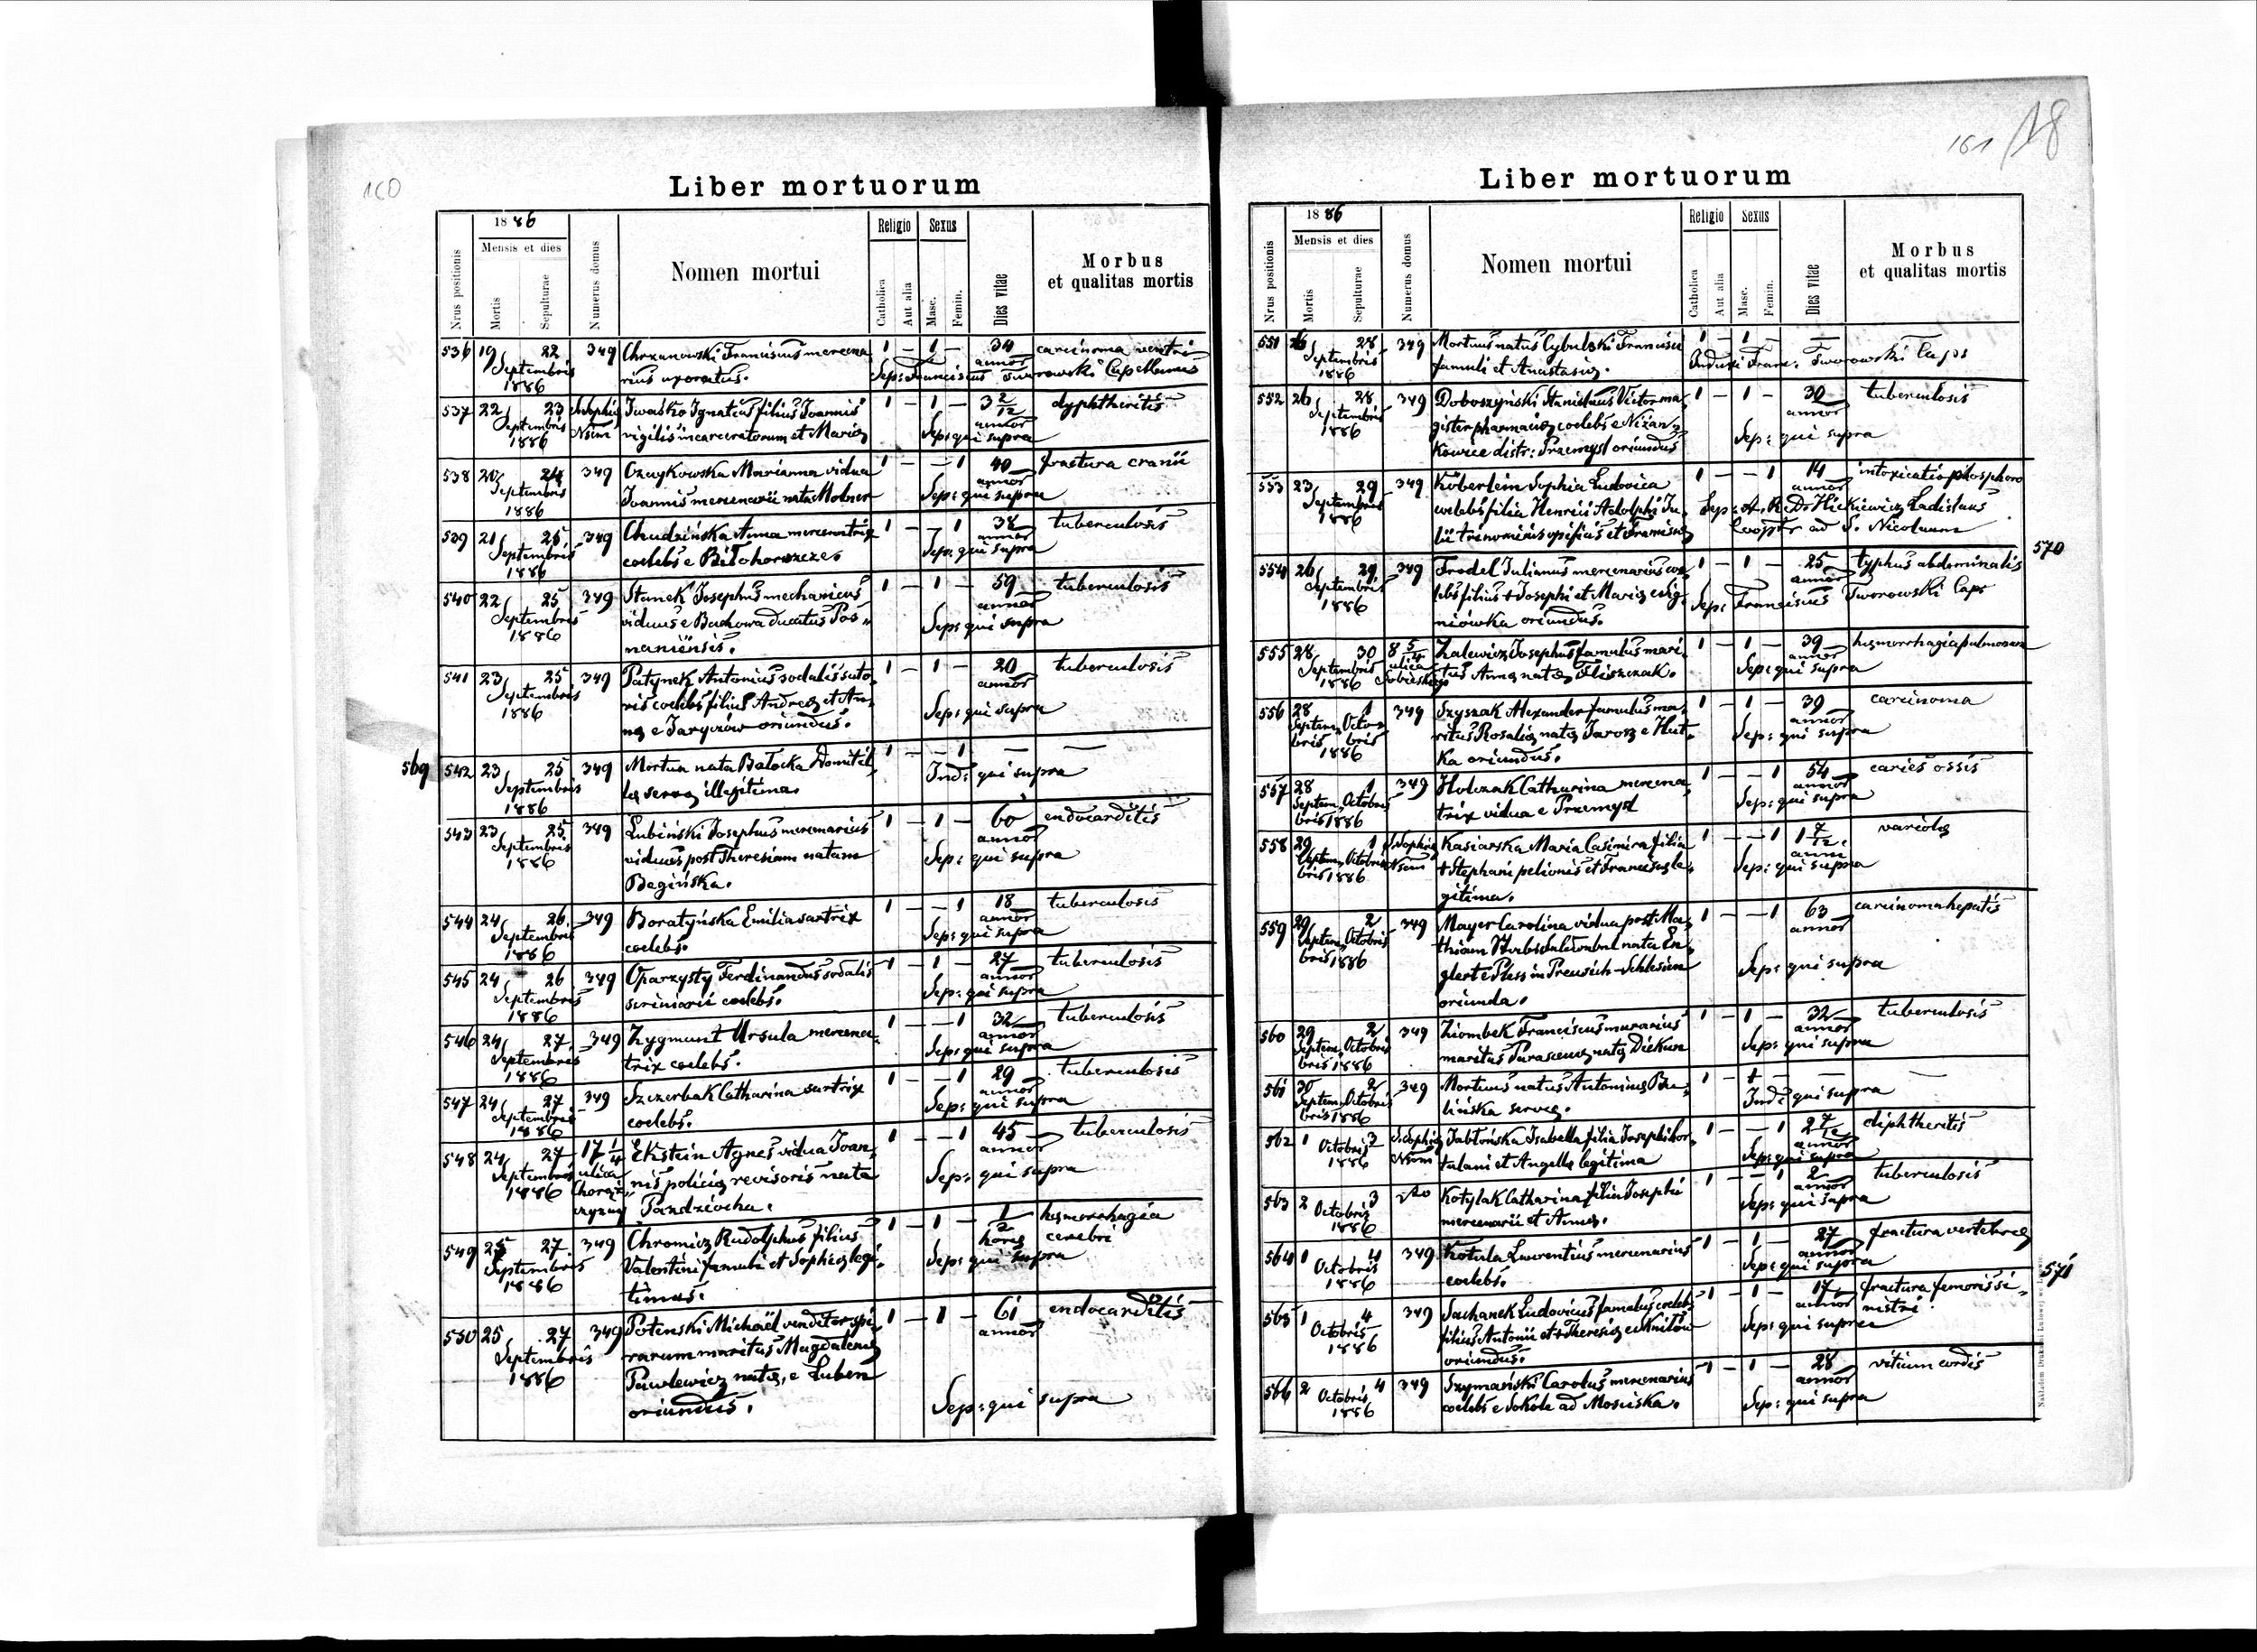 160
Liber mortuorum
Nrus positionis
1886
Mensis et dies
Mortis
Sepulturae
Numerus domus
Nomen mortui
Religio
Catholica
Aut alia
Sexus
Masc.
Femin.
Dies vitae
Morbus
et qualitas mortis
536 19 22 349 Chrzanowski Franciscus mercena 1 – 1 – 34 carcinoma ventri
Septembris rius uxoratus. annor
1886 Sep: Franciscus Tworowski Capellanus
537 22 23 S. Sophia Iwaśko Ignatius filius Joannis 1 – 1 – 3 2/12 dyphtheritis
Septembris Nsum vigilis incarceratorum et Mariæ annor
1886 Sep: qui supra
538 20 24 349 Czaykowska Marianna vidua 1 – – 1 40 fractura cranii
Septembris Joannis mercenarii nata Molner annor
1886 Sep: qui supra
539 21 25 349 Chudzińska Anna mercenatrix 1 – – 1 38 tuberculosis
Septembris coelebs e Biłohorszcze annor
1886 Sep: qui supra
540 22 25 349 Stanek Josephus mechanicus 1 – 1 – 59 tuberculosis
Septembris viduus e Bachowa ducatus Pos- annor
1886 naniensis. Sep: qui supra
541 23 25 349 Patynek Antonius sodalis suto- 1 – 1 – 20 tuberculosis
Septembris ris coelebs filius Andreæ et An- annor
1886 næ e Jaryczów oriundus. Sep: qui supra
569
542 23 25 349 Mortua nata Bałocka Domitil- 1 – – 1 — —
Septembris læ servæ illegitima. Ind: qui supra
1886
543 23 25 349 Łubiński Josephus mercenarius 1 – 1 – 60 endocarditis
Septembris viduus post Theresiam natam annor
1886 Begińska. Sep: qui supra
544 24 26 349 Boratyńska Emilia sartrix 1 – – 1 18 tuberculosis
Septembris coelebs. annor
1886 Sep: qui supra
545 24 26 349 Oparzysty Ferdinandus sodalis 1 – 1 – 27 tuberculosis
Septembris scriniarii coelebs. annor
1886 Sep: qui supra
546 24 27 349 Zygmunt Ursula mercena- 1 – – 1 32 tuberculosis
Septembris trix coelebs. annor
1886 Sep: qui supra
547 24 27 349 Szczerbak Catharina sartrix 1 – – 1 29 tuberculosis
Septembris coelebs. annor
1886 Sep: qui supra
548 24 27 17 1/4 Ekstein Agnes vidua Joan- 1 – – 1 45 tuberculosis
Septembris ulica nis policiæ revisoris nata annor
1886 Pandziocha. Sep: qui supra
549 25 27 349 Chromicz Rudolphus filius 1 – 1 – 1/2 hæmorrhagia
Septembris Valentini famuli et Sophiæ legi- horæ cerebri
1886 timus. Sep: qui supra
550 25 27 349 Potenski Michaël venditor spi- 1 – 1 – 61 endocarditis
Septembris rarum maritus Magdalenæ annor
1886 Pawlewicz natæ, e Luben
oriundus. Sep: qui supra
161 18
Liber mortuorum
Nrus positionis
1886
Mensis et dies
Mortis
Sepulturae
Numerus domus
Nomen mortui
Religio
Catholica
Aut alia
Sexus
Masc.
Femin.
Dies vitae
Morbus
et qualitas mortis
551 26 28 349 Mortuus natus Cybulski Francisci 1 – 1 – — —
Septembris famuli et Anastasiæ. Franc: Tworowski Cap
1886
552 26 28 349 Doboszyński Stanislaus Victor ma- 1 – 1 – 30 tuberculosis
Septembris gister pharmaciæ coelebs e Niżan- annor
1886 kowice distr: Przemysl oriundus Sep: qui supra
553 23 29 349 Köberlein Sophia Ludovica 1 – – 1 14 intoxicatio phosphoro
Septembris coelebs filia Henrici Adolphi Ju- annor
1886 lii trinominis opificis et Franciscæ Sep: A. R. D. Hickiewicz Ladislaus
Coopr ad S. Nicolaum
570
554 26 29 349 Frodel Julianus mercenarius coe- 1 – 1 – 25 typhus abdominalis
Septembris lebs filius + Josephi et Mariæ e Lig- annor
1886 niówka oriundus. Sep: Franciscus Tworowski Cap
555 28 30 8 5/4 Zalewicz Josephus famulus mari- 1 – 1 – 39 hæmorrhagia pulmonum
Septembris ulica tus Annæ natæ Oliszczak. annor
1886 Sobieskiego Sep: qui supra
556 28 1 349 Szyszak Alexander famulus ma- 1 – 1 – 39 carcinoma
Septem- Octo- ritus Rosaliæ natæ Jarosz e Hut- annor
bris bris ka oriundus. Sep: qui supra
1886
557 28 1 349 Holczak Catharina mercena- 1 – – 1 54 caries ossis
Septem- Octobris trix vidua e Przemysl annor
bris 1886 Sep: qui supra
558 29 1 S. Sophia Kasiarska Maria Casimira filia 1 – – 1 1 7/12 variola
Septem- Octobris Nsum + Stephani pelionis et Franciscæ le- anni
bris 1886 gitima. Sep: qui supra
559 29 2 349 Mayer Carolina vidua post Ma- 1 – – 1 63 carcinoma hepatis
Septem- Octobris thiam nata En- annor
bris 1886 glert e Pless in Preusich-Schlesien
oriunda. Sep: qui supra
560 29 2 349 Ziombek Franciscus murarius 1 – 1 – 32 tuberculosis
Septem- Octobris maritus Parascevæ natæ Diekun annor
bris 1886 Sep: qui supra
561 30 2 349 Mortuus natus Antoninæ Bu- 1 – 1 – — —
Septem- Octobris lińska servæ. Ind: qui supra
bris 1886
562 1 3 S. Sophia Jabłońska Isabella filia Josephi hor- 1 – – 1 2 7/12 diphtheritis
Octobris Nsum tulani et Angelæ legitima annor
1886 Sep: qui supra
563 2 3 Kotylak Catharina filia Josephi 1 – – 1 2 tuberculosis
Octobris mercenarii et Annæ. annor
1886 Sep: qui supra
564 1 4 349 Kotula Laurentius mercenarius 1 – 1 – 27 fractura vertebræ
Octobris coelebs. annor
1886 Sep: qui supra
571
565 1 4 349 Sachanek Ludovicus famulus coelebs 1 – 1 – 17 fractura femoris si-
Octobris filius Antonii et + Theresiæ e Knitów annor nistri.
1886 oriundus. Sep: qui supra
566 2 4 349 Szymański Carolus mercenarius 1 – 1 – 28 vitium cordis
Octobris coelebs e Sokole ad Mosciska. annor
1886 Sep: qui supra